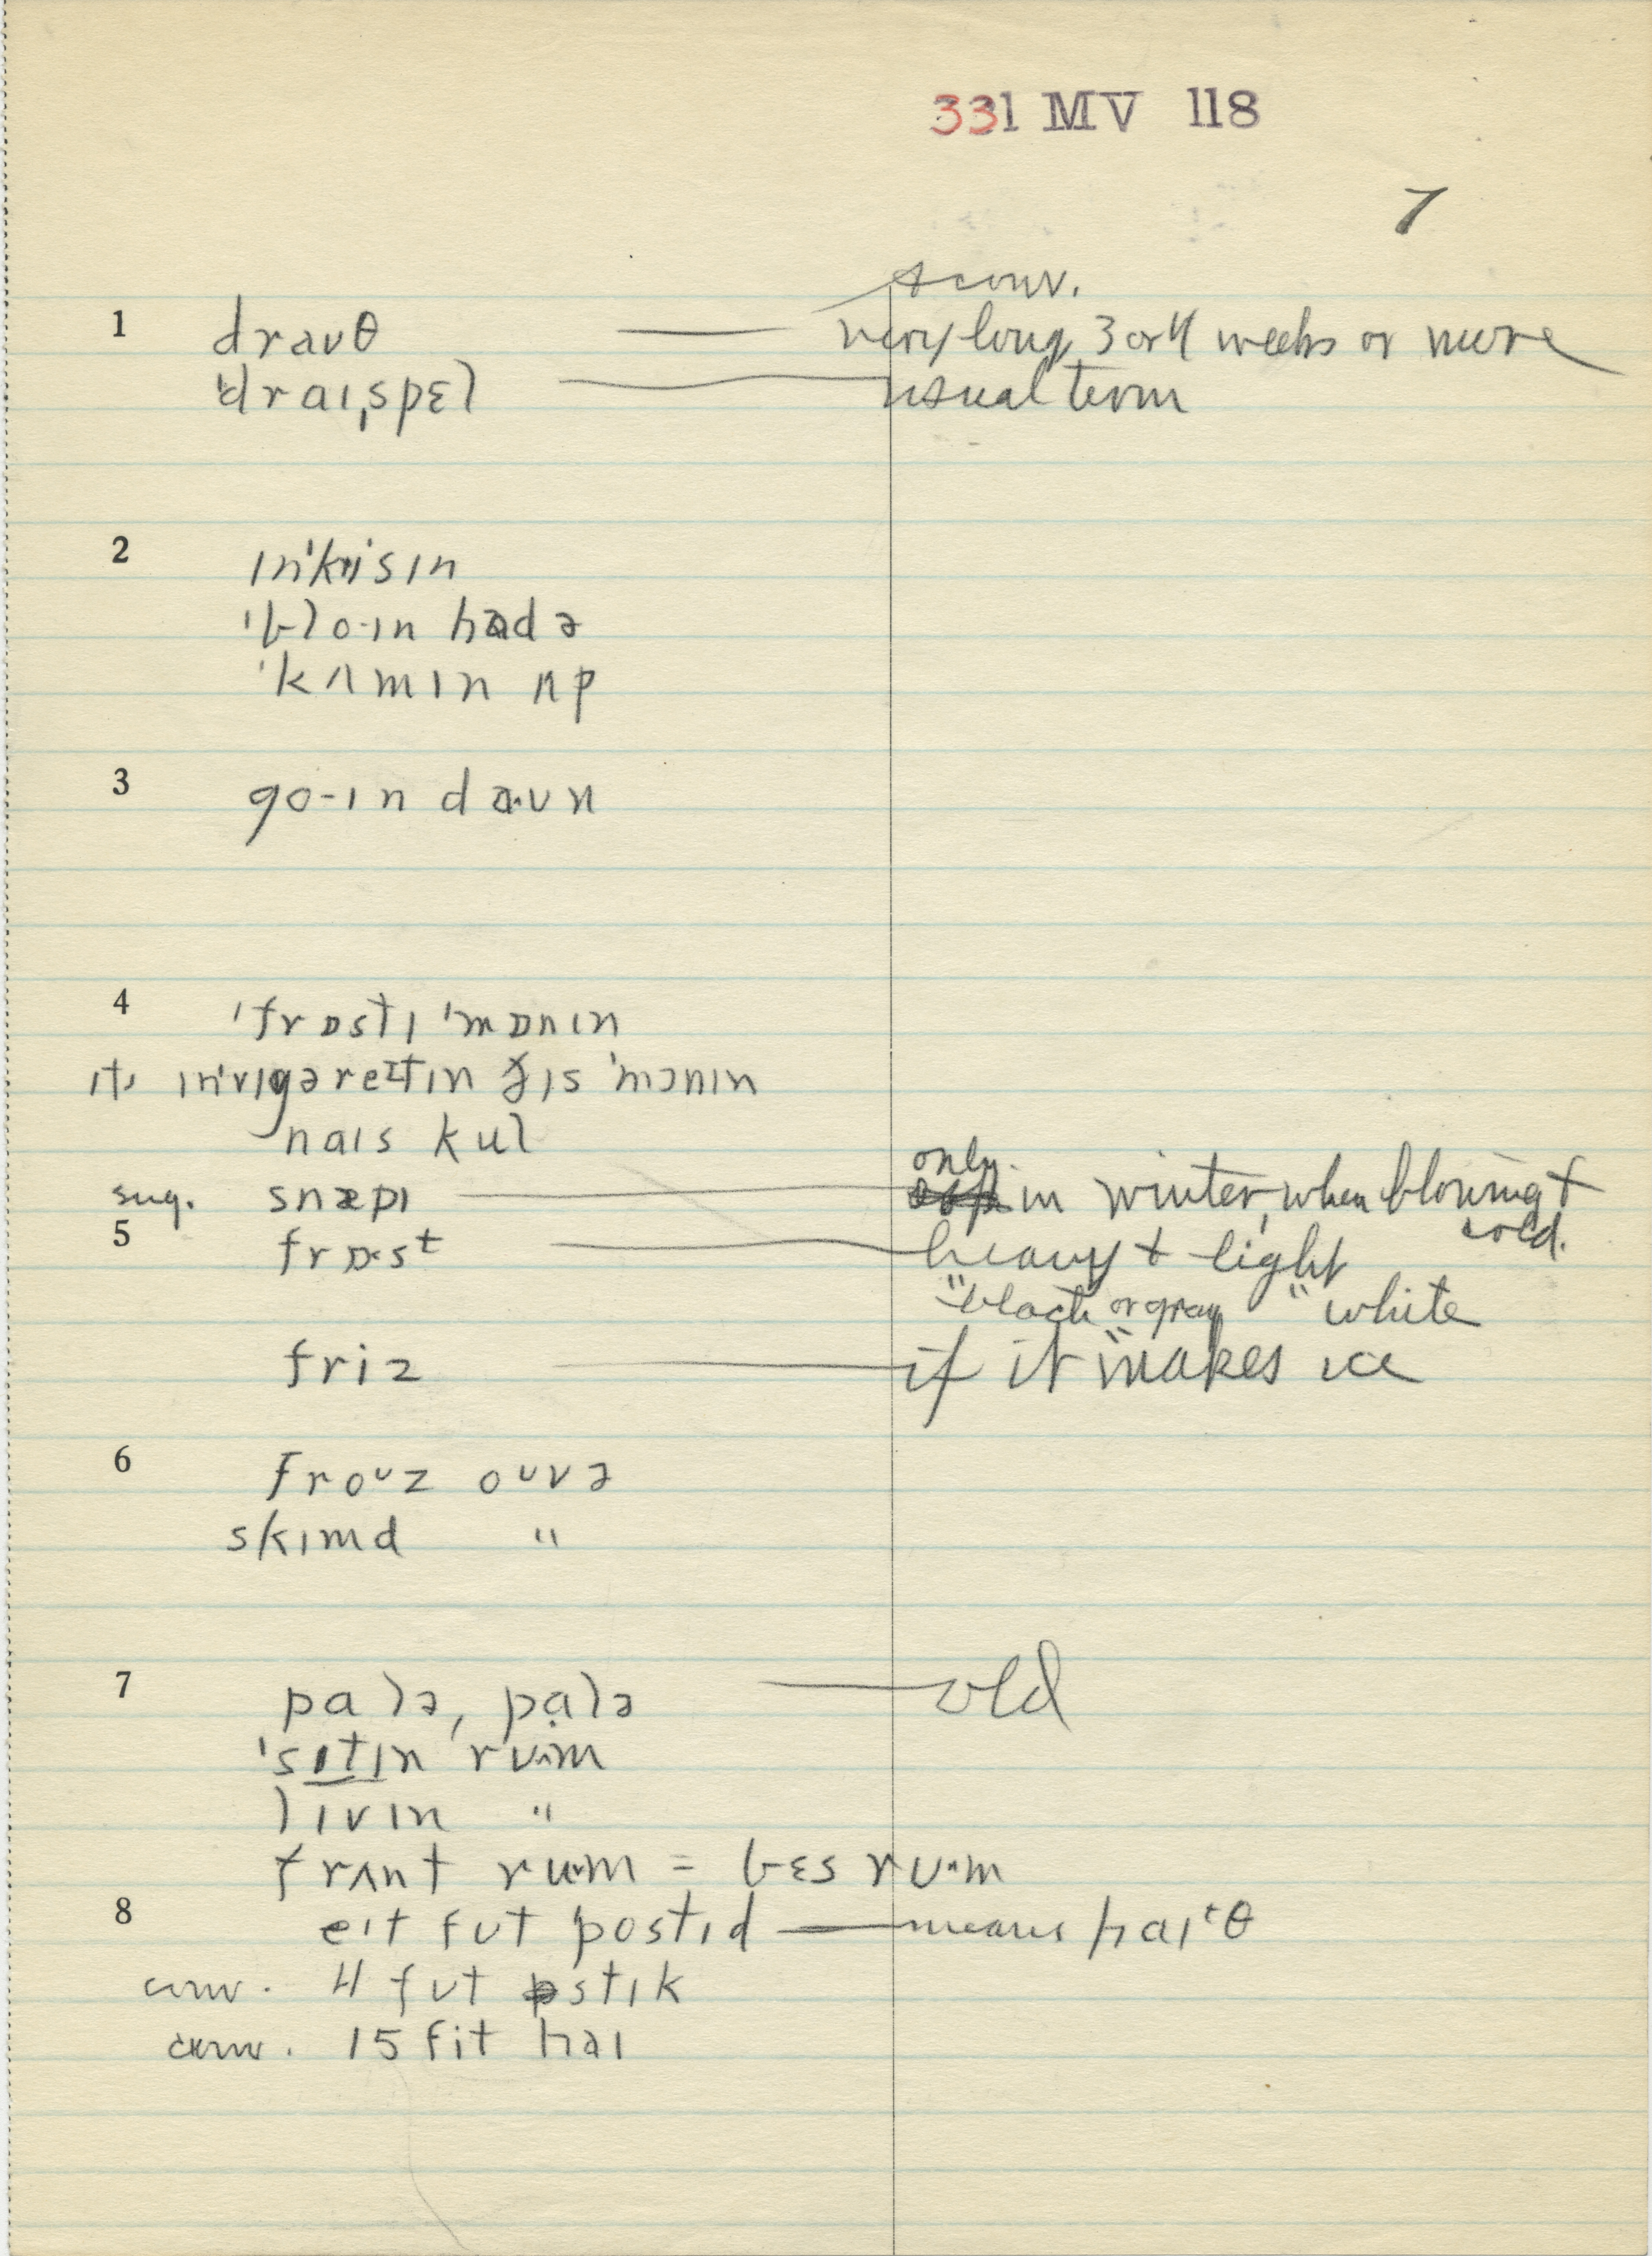 331 MV 118
7
& conv.
1 drauθ — very long, 3 or 4 weeks or more
ˈdraɪˌspɛl — usual term
2 ɪnˈkrisɪn
ˈblo-ɪn hɑdə
ˈkʌmɪn ʌp
3 go-ɪn daˑʊn
4 ˈfrɒstɪ ˈmɒnɪn
ɪts ɪnˈvɪgəreɪtɪn ðɪs ˈmɔnɪn
naɪs kul
only
sug. snæpɪ — in winter, when blowing + cold.
5 frɒˑst — heavy + light
"black or gray" " white
friz — if it "makes ice
6 froʊz oʊvə
skɪmd "
7 palə, pạlə — old
ˈsɪtɪn rum
lɪvɪn "
frʌnt rum = bɛs rum
8 eɪt fʊt postɪd — means haɪtθ
conv. 4 fʊt stɪk
conv. 15 fit haɪ